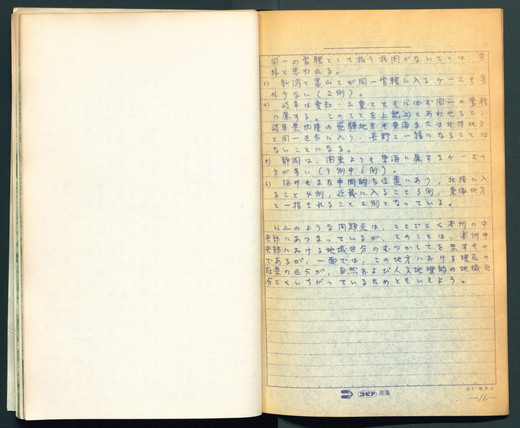 同一の管轄として扱う機関がないことは 意
外と思われる。
新潟と富山とが同一管轄に入るケースも意
外と少ない（2例）。
岐阜は愛知・三重とともにほぼ同一の管轄
に属する。このことを上記の とあわせると、
岐阜県内陸の飛騨地方も東海または北陸地方
と同一区分に入り、長野と一緒になることは
ないことになる。
静岡は、関東よりも東海に属するケースの
方が多い（9例中6例）。
福井もまた中間的な位置にあり、北陸に入
ること4例、近畿に入ること3例、東海地方
と一括されること2例となっている。
以上のような問題点は、ことごとく本州の中
央部にあつまっているが、このことは、本州中
央部における地域区分のむつかしさを示すもの
であるが、一面では、この地方における現在の
行政の区分が、自然および人文地理的の地域区
分とくいちがっているためともいえよう。
コピア 用箋
—16—